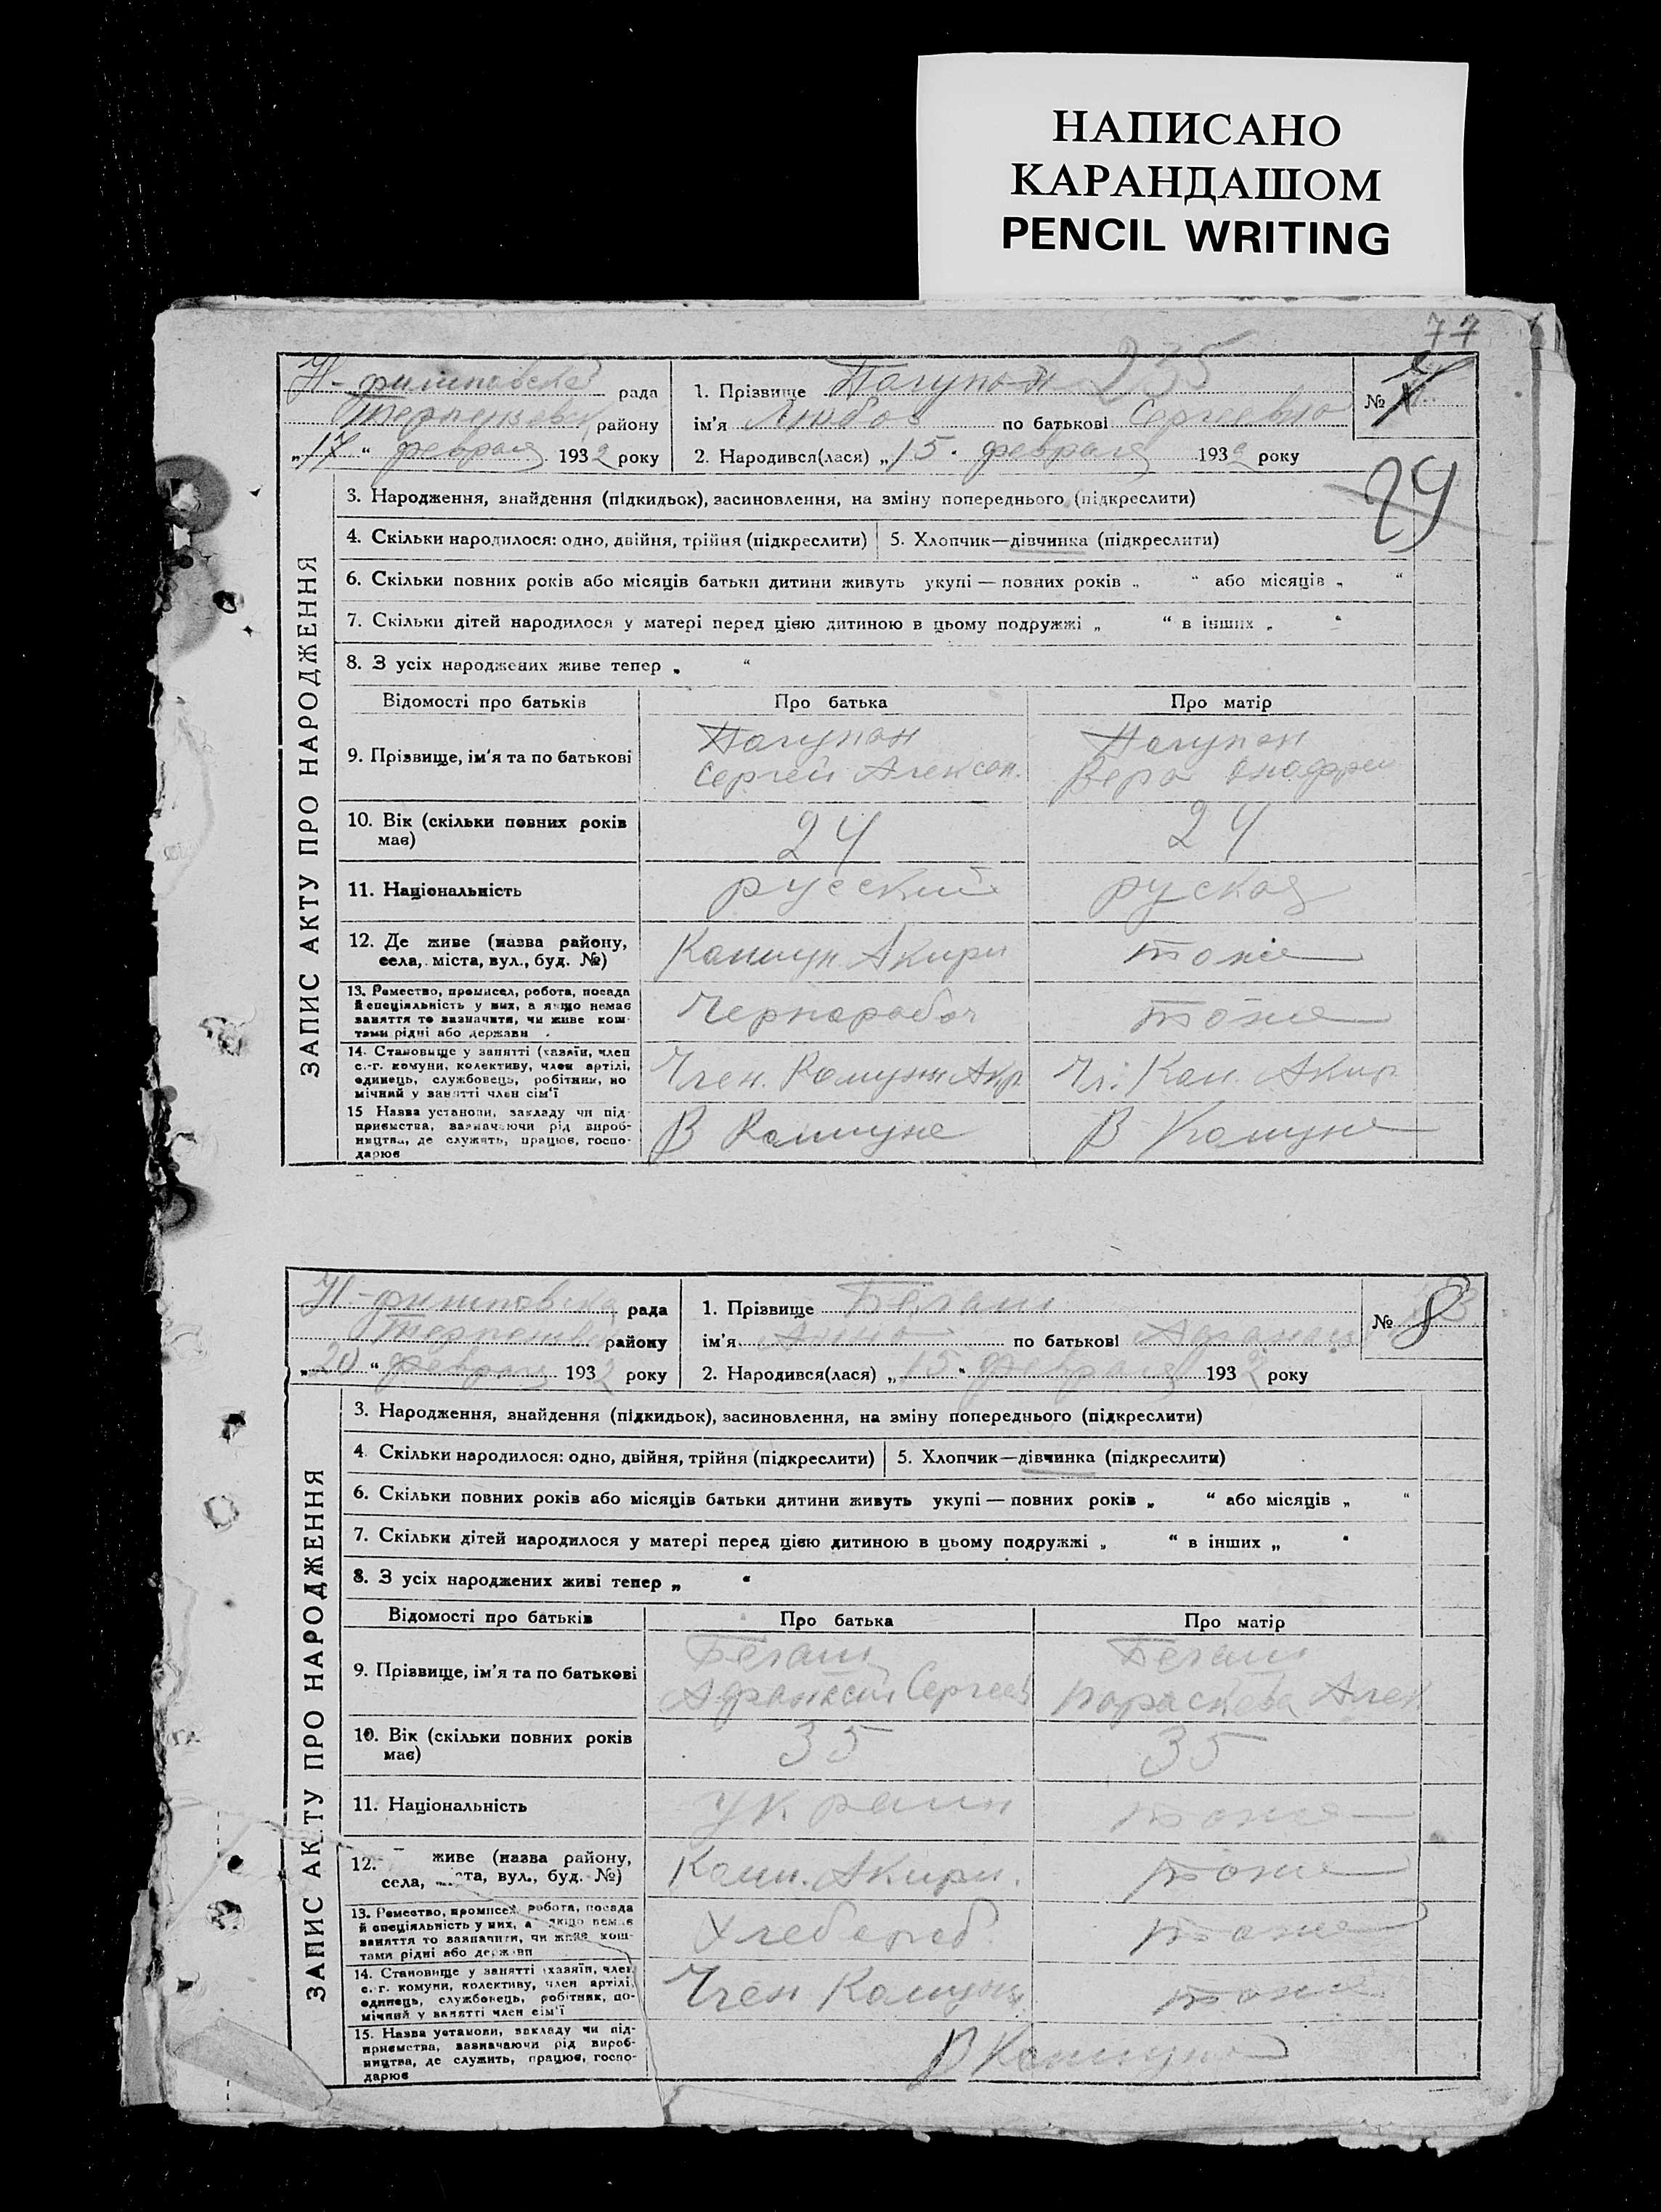 НАПИСАНО
КАРАНДАШОМ
PENCIL WRITING
77
235
рада
району
„17“ февраля 1932 року
1. Прізвище
№
ім'я Любов по батькові Сергеевна
2. Народився(лася) „15. февраля 1932 року
24
ЗАПИС АКТУ ПРО НАРОДЖЕННЯ
3. Народження, знайдення (підкидьок), засиновлення, на зміну попереднього (підкреслити)
4. Скільки народилося: одно, двійня, трійня (підкреслити) 5. Хлопчик—дівчинка (підкреслити)
6. Скільки повних років або місяців батьки дитини живуть укупі — повних років „ “ або місяців „ “
7. Скільки дітей народилося у матері перед цією дитиною в цьому подружжі „ “ в інших „ “
8. З усіх народжених живе тепер „ “
Відомості про батьків Про батька Про матір
9. Прізвище, ім'я та по батькові
Сергей Алексан. Вера
10. Вік (скільки повних років має) 24 24
11. Національність русский руская
12. Де живе (назва району, села, міста, вул., буд. №) тоже
13. Ремество, промисел, робота, посада й спеціяльність у них, а якщо немає заняття то зазначити, чи живе коштами рідні або держави Чернорабоч тоже
14. Становище у занятті (хазяїн, член с.-г. комуни, колективу, член артілі, одинець, службовець, робітник, помічний у занятті член сім'ї Член.
15 Назва установи, закладу чи підприємства, зазначаючи рід виробництва, де служить, працює, господарює В Коммуне В Комуне
рада
району
„20“ февраля 1932 року
1. Прізвище
№ 8
ім'я Анна по батькові
2. Народився(лася) „15“ февраля 1932 року
ЗАПИС АКТУ ПРО НАРОДЖЕННЯ
3. Народження, знайдення (підкидьок), засиновлення, на зміну попереднього (підкреслити)
4. Скільки народилося: одно, двійня, трійня (підкреслити) 5. Хлопчик—дівчинка (підкреслити)
6. Скільки повних років або місяців батьки дитини живуть укупі — повних років „ “ або місяців „ “
7. Скільки дітей народилося у матері перед цією дитиною в цьому подружжі „ “ в інших „ “
8. З усіх народжених живі тепер „ “
Відомості про батьків Про батька Про матір
9. Прізвище, ім'я та по батькові
Афанасий Сергеев Параскева Алек
10. Вік (скільки повних років має) 35 35
11. Національність Украин тоже
12. живе (назва району, села, та, вул., буд. №) тоже
13. Ремество, промисел, робота, посада й спеціяльність у них, а якщо немає заняття то зазначити, чи живе коштами рідні або держави Хлебороб. тоже
14. Становище у занятті (хазяїн, член с.-г. комуни, колективу, член артілі, одинець, службовець, робітник, помічний у занятті член сім'ї Член тоже
15. Назва установи, закладу чи підприємства, зазначаючи рід виробництва, де служить, працює, господарює В Коммуне